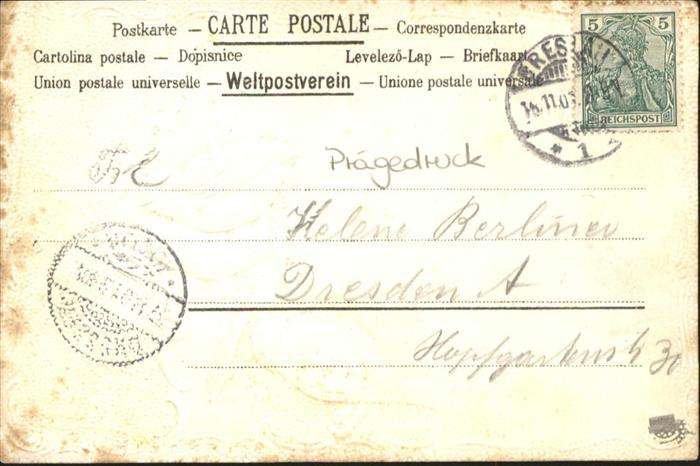 Postkarte – CARTE POSTALE – Correspondenzkarte
Cartolina postale – Dopisnice Levelező-Lap – Briefkaart
Union postale universelle – Weltpostverein – Unione postale universale
5 5
REICHSPOST
BRESLAU
14.11.03
* 1
Prägedruck
Helene Berliner
Dresden A
30